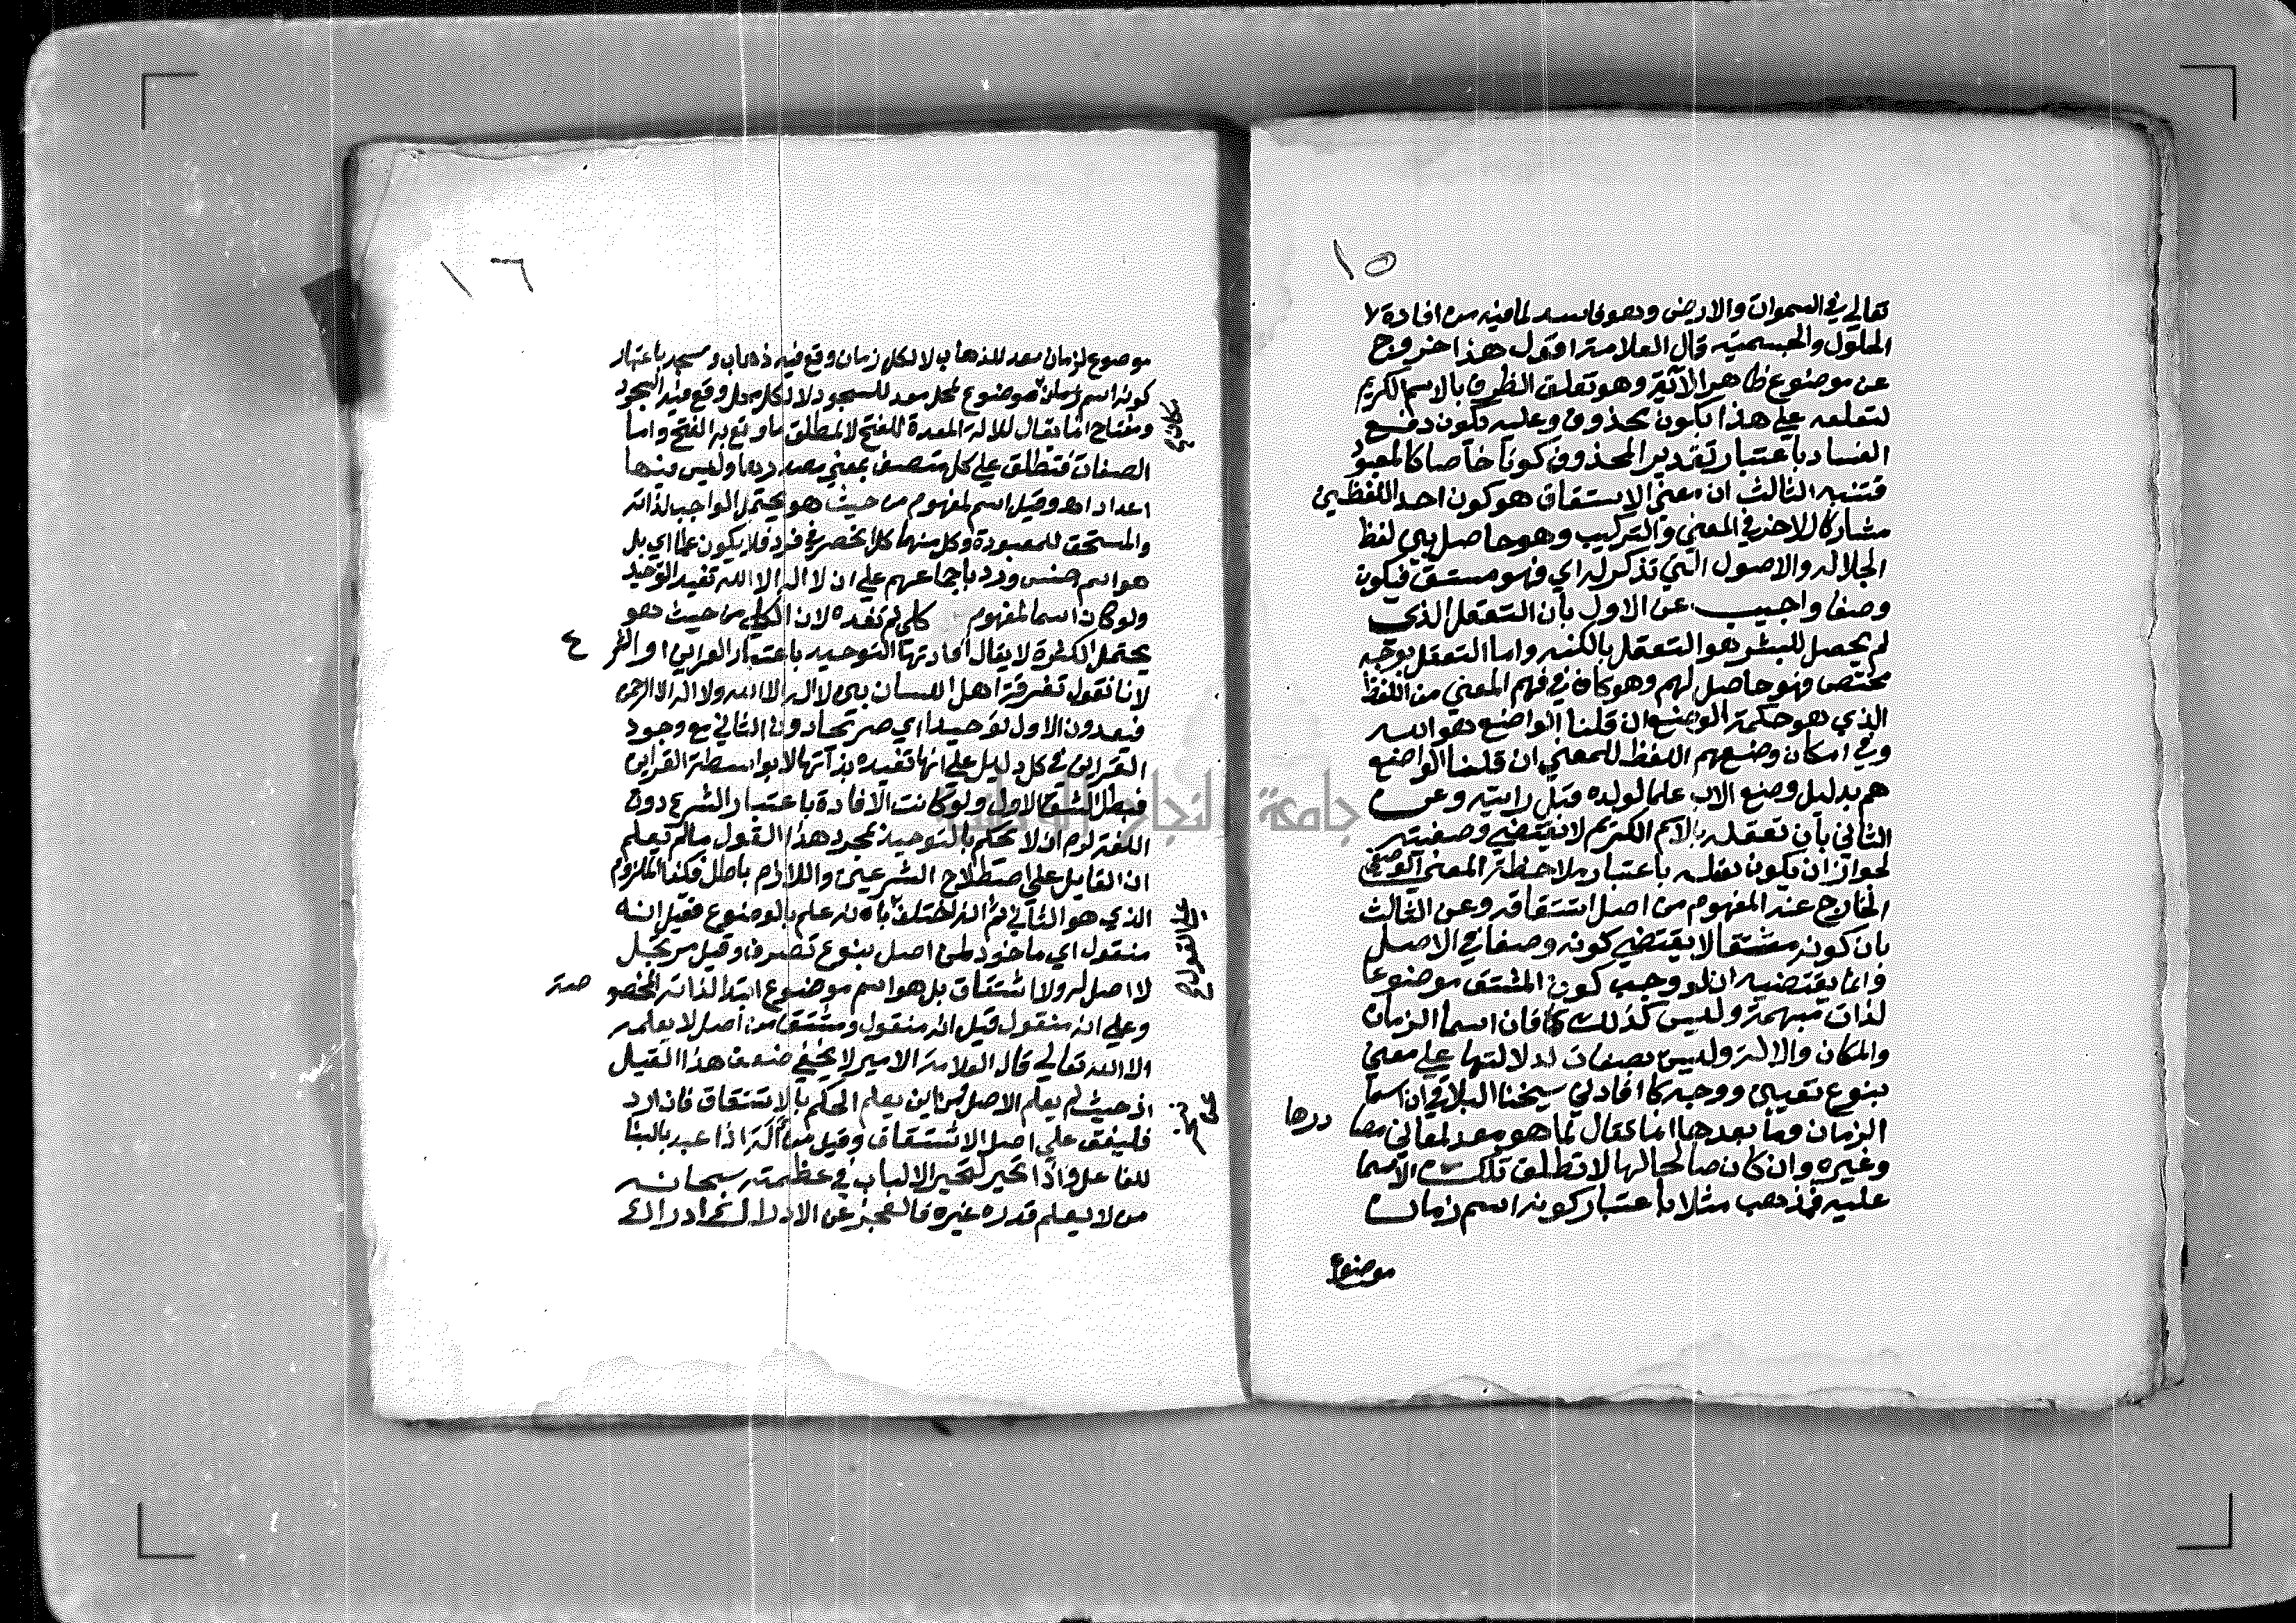 ١٥
تعالي في السموات والارض وهو فاسد لما فيه من افادة لا
الحلول والجسمية قال العلامة اقول هذا خروج
عن موضوع ظاهر الآية وهو تعلق الظرف بالاسم الكريم
لتعلقه علي هذا بكون محذوف وعليه يكون دفع
الفساد باعتبار تقدير المحذوف كونا خاصا كالمعبود
فتنبه الثالث ان معني الاشتقاق هو كون احد اللفظين
مشاركا للاخر في المعني والتركيب وهو حاصل بين لفظ
الجلاله والاصول التي تذكر له اي فهو مشتق فيكون
وصفا واجيب عن الاول بان التعقل الذي
لم يحصل للبشر هو التعقل بالكنه واما التعقل بوجه
مختص فهو حاصل لهم وهو كاف في فهم المعني من اللفظ
الذي هو حكمة الوضع ان قلنا الواضع هو الله
وفي امكان وضعهم اللفظ للمعني ان قلنا الواضع
هم بدليل وضع الاب علما لولده قبل رايته وعن
الثاني بان تعقله بالاسم الكريم لا يقتضي وصفيته
لجواز ان يكون تعلقه باعتبار ملاحظة المعني الوصفي
الخارج عند المفهوم من اصل اشتقاقه وعن الثالث
بان كونه مشتقا لا يقتضي كونه وصفا في الاصل
وانما يقتضيه ان لو وجب كون المشتق موضوعا
لذات مبهمة وليس كذلك فان اسما الزمان
والمكان والالة وليس بصفات لدلالتها علي معني
بنوع تعيين ووجه كما افادني شيخنا البلا في ان اسما
الزمان وما بعدهما انما تقال لما هو معد لمعاني مصادرها
وغيره وان كان صالحا لها لا تطلق تلك الاسما
عليه فمذهب مثلا باعتبار كونه اسم زمان
موضوع
١٦
موضوع لزمان معد للذهاب لا لكل زمان وقع فيه ذهاب ومسجد باعتبار
كونه اسم زمان موضوع لمحل معد للسجود لا لكل محل وقع فيه السجود
ومفتاح انما يقال للالة المعدة للفتح لا لمطلق ما وقع به الفتح واما
الصفات فتطلق علي كل متصف بمعني مصدرها وليس فيها
اعداد اهـ وقيل اسم لمفهوم من حيث هو يحتمل الواجب لذاته
والمستحق للمعبودة وكل منهما كلي انحصر في فرد فلا يكون علما اي بل
هو اسم جنس ورد باجماعهم علي ان لا اله الا الله تفيد التوحيد
ولو كان اسما لمفهوم كلي لم تفده لان الكلي من حيث هو
يحتمل الكثرة لا يقال افادتها التوحيد باعتبار القراين او الشرع
لانا نقول تفرقة اهل اللسان بين لا اله الا الله ولا اله الا الرحمن
فيعدون الاول توحيدا اي صريحا دون الثاني مع وجود
القراين في كل دليل علي انها تفيده بذاتها لا بواسطة القراين
فبطل الشق الاول ولو كانت الافادة باعتبار الشرع دون
اللغة لزم ان لا نحكم بالتوحيد بمجرد هذا القول ما لم نعلم
ان القايل علي اصطلاح الشرعيين واللازم باطل فكذا الملزوم
الذي هو الثاني ثم انه اختلف بانه علم بالوضوع فقيل انه
علي القول
منقول اي ماخوذ من اصل بنوع تصرف وقيل مرتجل
لا اصل له ولا اشتقاق بل هو اسم موضوع ابتدا لذاته المخصوصة
وعلي انه منقول قيل انه منقول ومشتق من اصل لا يعلمه
الا الله تعالي قال العلامة الامير لا يخفي ضعف هذا القيل
اذ حيث لم يعلم الاصل فمن اين يعلم الحكم بالاشتقاق فان اراد
فلينفق علي اصل الاشتقاق وقيل من أله اذا عبد بالبنا
للفاعل واذا تحير لتحير الالباب في عظمته سبحانه
من لا يعلم قدره غيره فالعجز عن الادراك ادراك
جامعة النجاح الوطنية